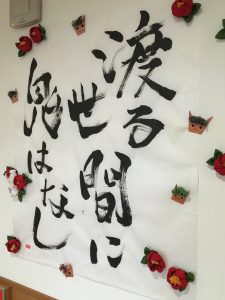 渡る
世間に
鬼はなし